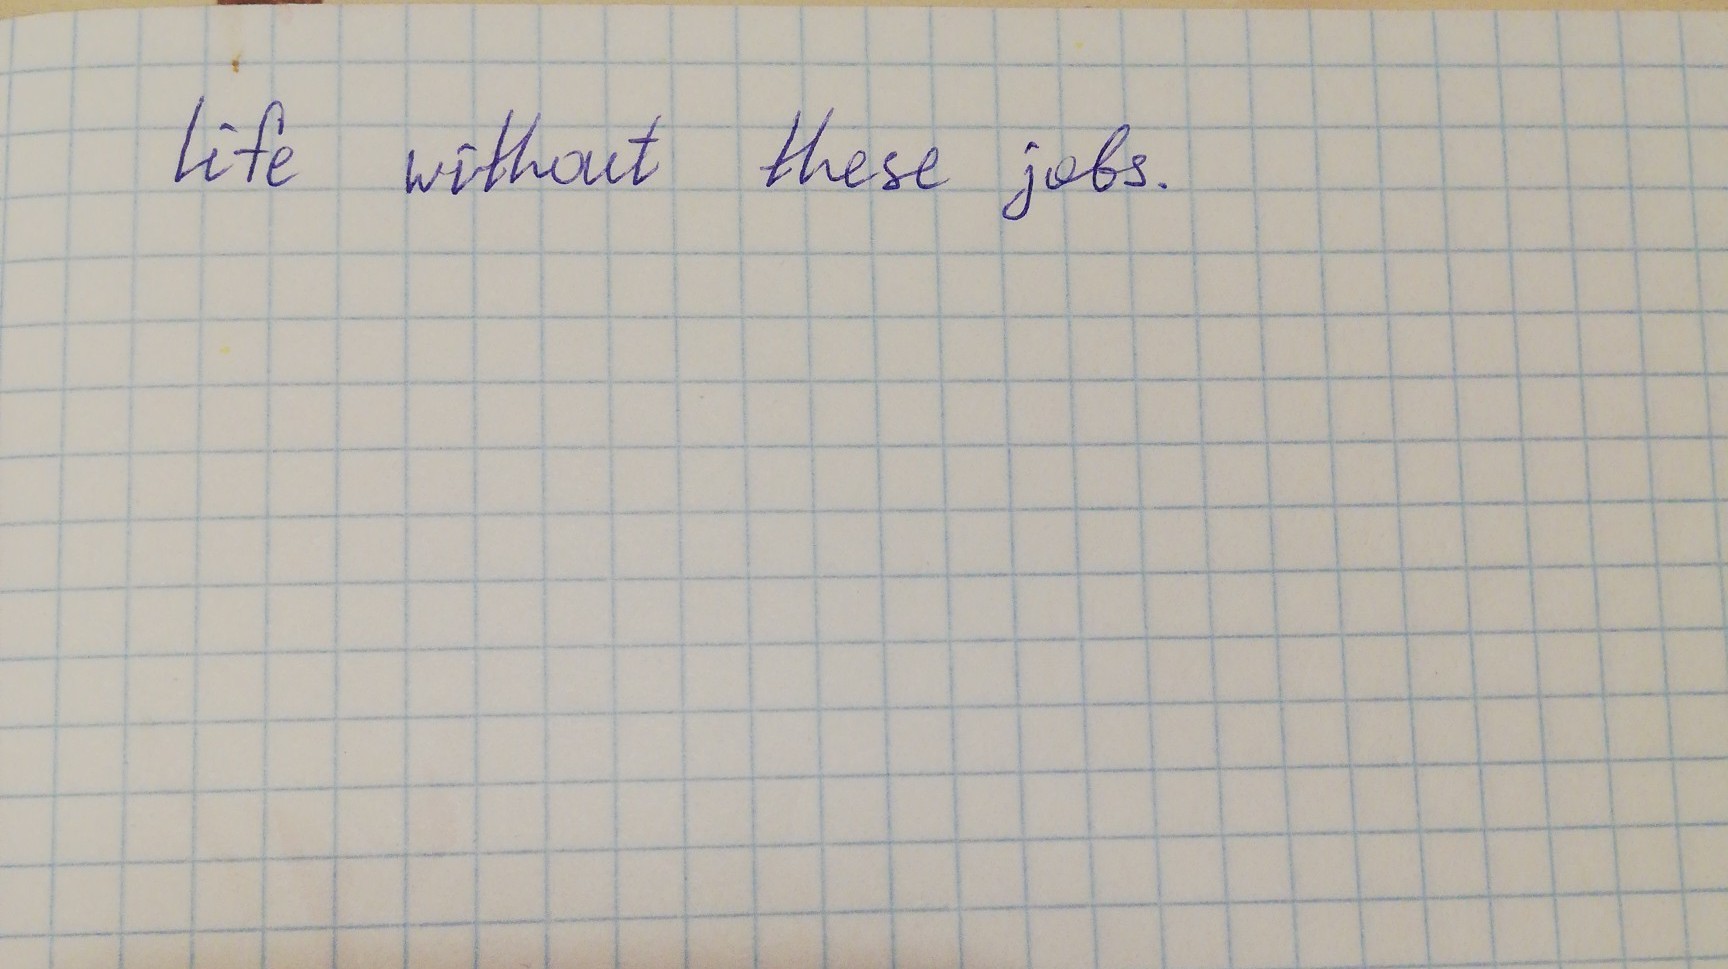 life without these jobs.